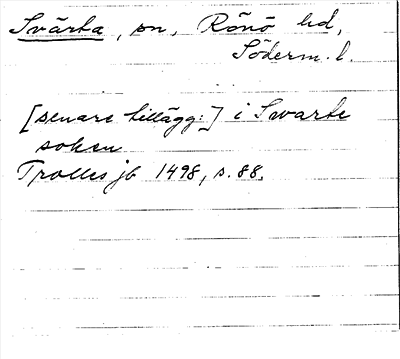 Svärta, sn, Rönö hd,
Söderm. l.
[senare tillägg:] i Swarte
soken
Trolles jb 1498, s. 88.